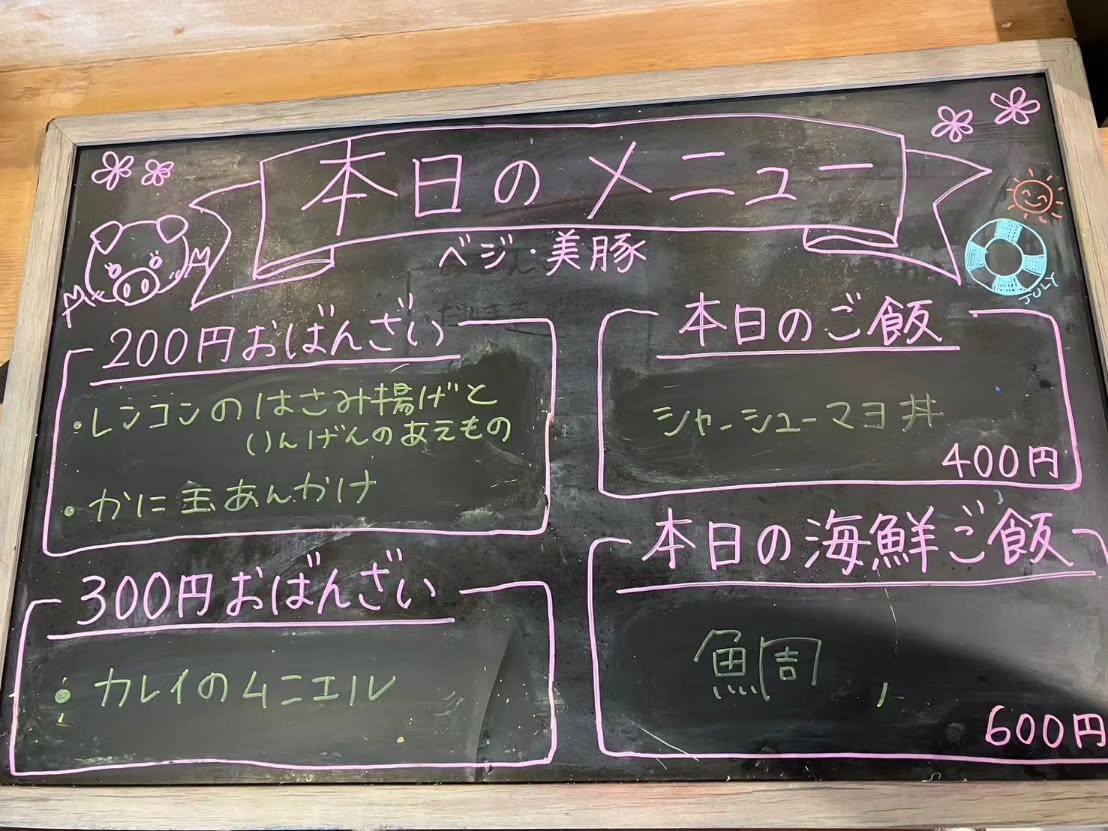 本日のメニュー
ベジ・美豚
200円おばんざい
・レンコンのはさみ揚げと
いんげんのあえもの
・かに玉あんかけ
300円おばんざい
・カレイのムニエル
本日のご飯
シャーシューマヨ丼
400円
本日の海鮮ご飯
鯛
600円
JULY